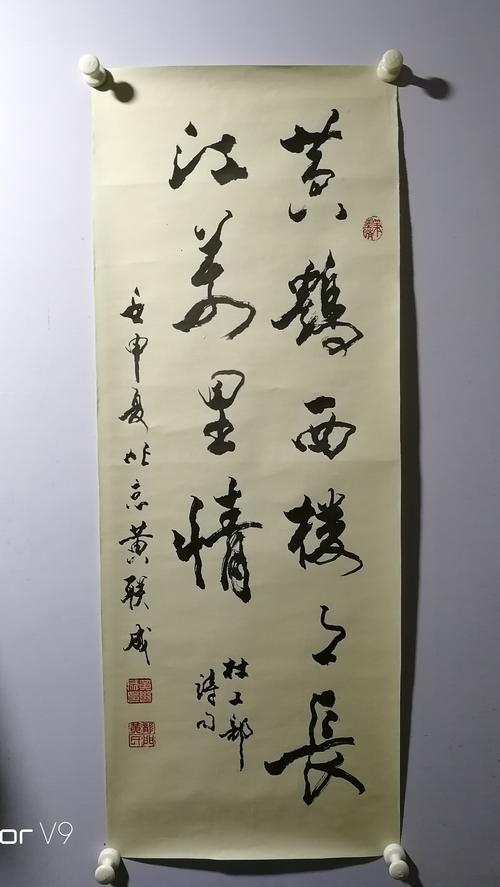 黄鶴西楼月長
江萬里情
杜工部
詩句
壬申夏北京黄联成
or V9